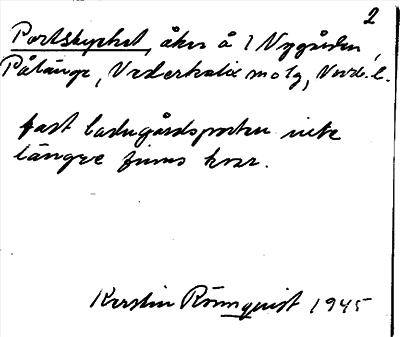 2
Portstycket åker å 1 Nygården,
Pålänge, Nederkalix
fast ladugårdsporten icke
längre finns kvar.
Kerstin Rönnquist 1945